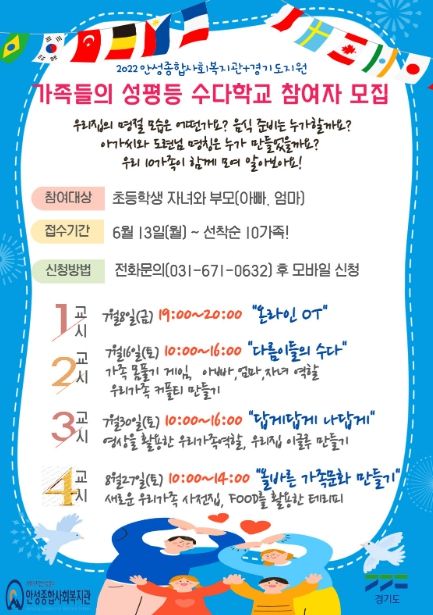 2022 안성종합사회복지관+경기도지원
가족들의 성평등 수다학교 참여자 모집
우리집의 명절 모습은 어떤가요? 음식 준비는 누가할까요?
아가씨와 도련님 명칭은 누가 만들었을까요?
우리 10가족이 함께 모여 알아보아요!
참여대상 초등학생 자녀와 부모(아빠, 엄마)
접수기간 6월 13일(월) ~ 선착순 10가족!
신청방법 전화문의(031-671-0632) 후 모바일 신청
1교시 7월8일(금) 19:00~20:00 "온라인 OT"
2교시 7월16일(토) 10:00~16:00 "다름이들의 수다"
가족 몸풀기 게임, 아빠,엄마,자녀 역할
우리가족 커플티 만들기
3교시 7월30일(토) 10:00~16:00 "답게답게 나답게"
영상을 활용한 우리가족역할, 우리집 이글루 만들기
4교시 8월27일(토) 10:00~14:00 "올바른 가족문화 만들기"
새로운 우리가족 사전집, FOOD를 활용한 테라피
안성종합사회복지관
경기도